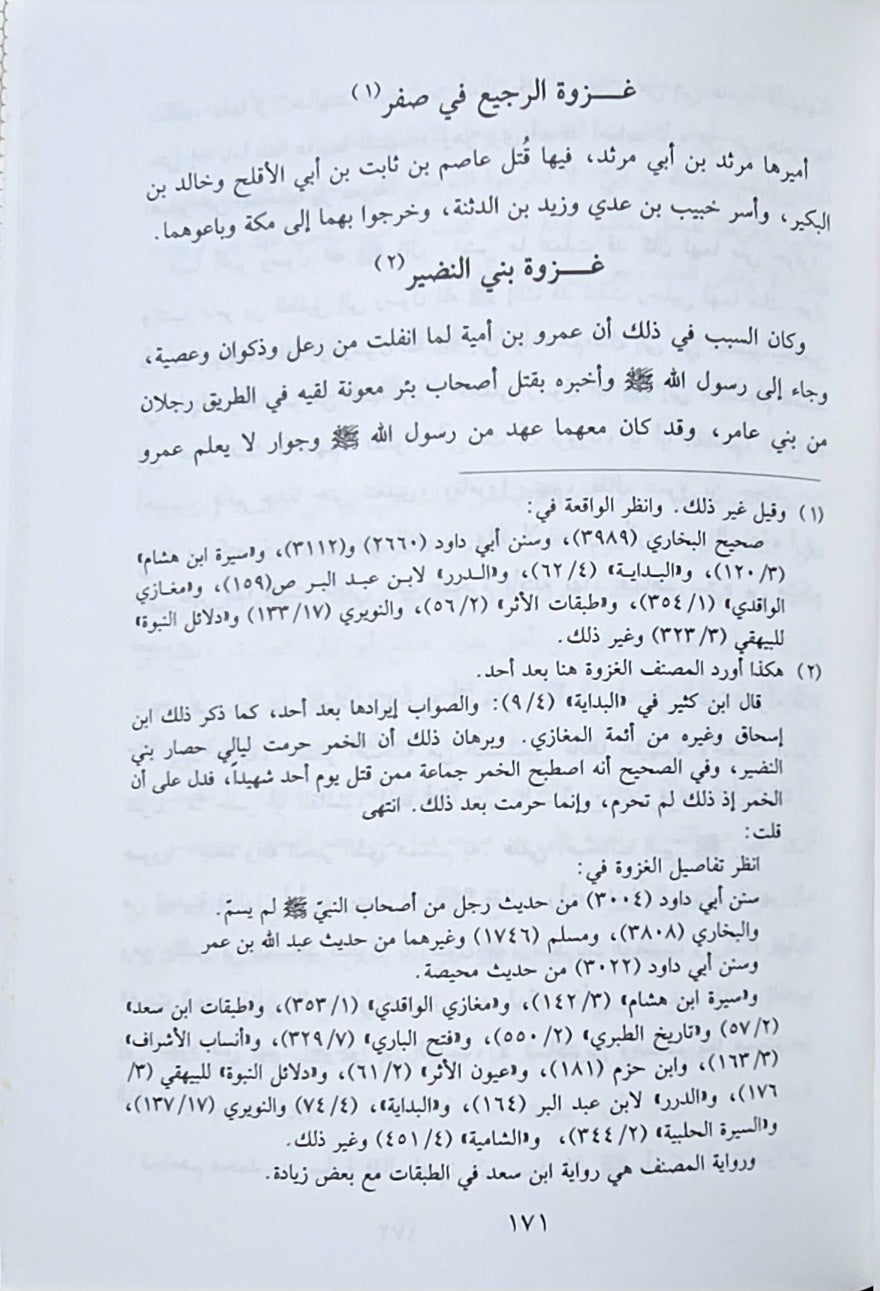 غـــزوة الرجيع في صفر(١)
أميرها مرثد بن أبي مرثد، فيها قُتل عاصم بن ثابت بن أبي الأقلح وخالد بن
البكير، وأسر خبيب بن عدي وزيد بن الدثنة، وخرجوا بهما إلى مكة وباعوهما.
غـــزوة بني النضير(٢)
وكان السبب في ذلك أن عمرو بن أمية لما انفلت من رعل وذكوان وعصية،
وجاء إلى رسول الله ﷺ وأخبره بقتل أصحاب بئر معونة لقيه في الطريق رجلان
من بني عامر، وقد كان معهما عهد من رسول الله ﷺ وجوار لا يعلم عمرو
(١) وقيل غير ذلك. وانظر الواقعة في:
صحيح البخاري (٣٩٨٩)، وسنن أبي داود (٢٦٦٠) و(٣١١٢)، و«سيرة ابن هشام»
(١٢٠/٣)، و«البداية» (٦٢/٤)، و«الدرر» لابن عبد البر ص(١٥٩)، و«مغازي
الواقدي» (٣٥٤/١)، و«طبقات الأثر» (٥٦/٢)، والنويري (١٣٣/١٧) و«دلائل النبوة»
للبيهقي (٣٢٣/٣) وغير ذلك.
(٢) هكذا أورد المصنف الغزوة هنا بعد أحد.
قال ابن كثير في «البداية» (٩/٤): والصواب إيرادها بعد أحد، كما ذكر ذلك ابن
إسحاق وغيره من أئمة المغازي. وبرهان ذلك أن الخمر حرمت ليالي حصار بني
النضير، وفي الصحيح أنه اصطبح الخمر جماعة ممن قتل يوم أحد شهيداً، فدل على أن
الخمر إذ ذلك لم تحرم، وإنما حرمت بعد ذلك. انتهى
قلت:
انظر تفاصيل الغزوة في:
سنن أبي داود (٣٠٠٤) من حديث رجل من أصحاب النبيّ ﷺ لم يسمّ.
والبخاري (٣٨٠٨)، ومسلم (١٧٤٦) وغيرهما من حديث عبد الله بن عمر
وسنن أبي داود (٣٠٢٢) من حديث محيصة.
و«سيرة ابن هشام» (١٤٢/٣)، و«مغازي الواقدي» (٣٥٣/١)، و«طبقات ابن سعد»
(٥٧/٢) و«تاريخ الطبري» (٥٥٠/٢)، و«فتح الباري» (٣٢٩/٧)، و«أنساب الأشراف»
(١٦٣/٣)، وابن حزم (١٨١)، و«عيون الأثر» (٦١/٢)، و«دلائل النبوة» للبيهقي (٣/
١٧٦)، و«الدرر» لابن عبد البر (١٦٤)، و«البداية»، (٧٤/٤) والنويري (١٣٧/١٧)،
و«السيرة الحلبية» (٣٤٤/٢)، و«الشامية» (٤٥١/٤) وغير ذلك.
ورواية المصنف هي رواية ابن سعد في الطبقات مع بعض زيادة.
١٧١